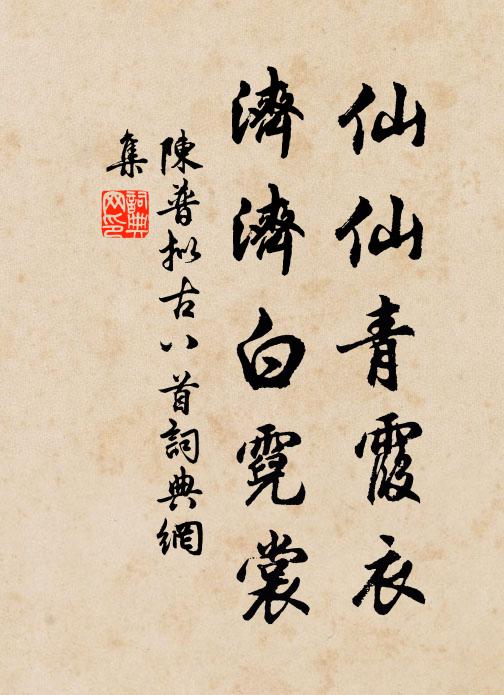 仙仙青霞衣
濟濟白霓裳
陳普拟古八首詞典網
集
詞典
网印